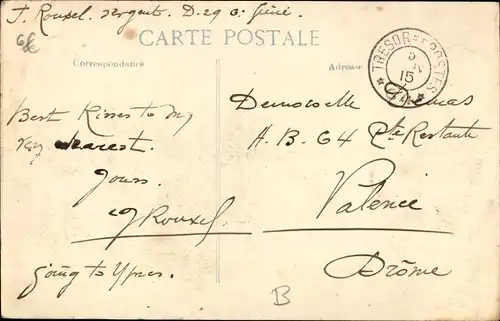 J. Rouxel. sergent. D. 29 G. Génie.
CARTE POSTALE
Correspondance
Adresse
TRESOR ET POSTES
5
15
Best Kisses to My
very dearest.
Yours.
J Rouxel.
going to Ypres.
Demoiselle
A. B. 64 Pte Restante
Valence
Drôme
B